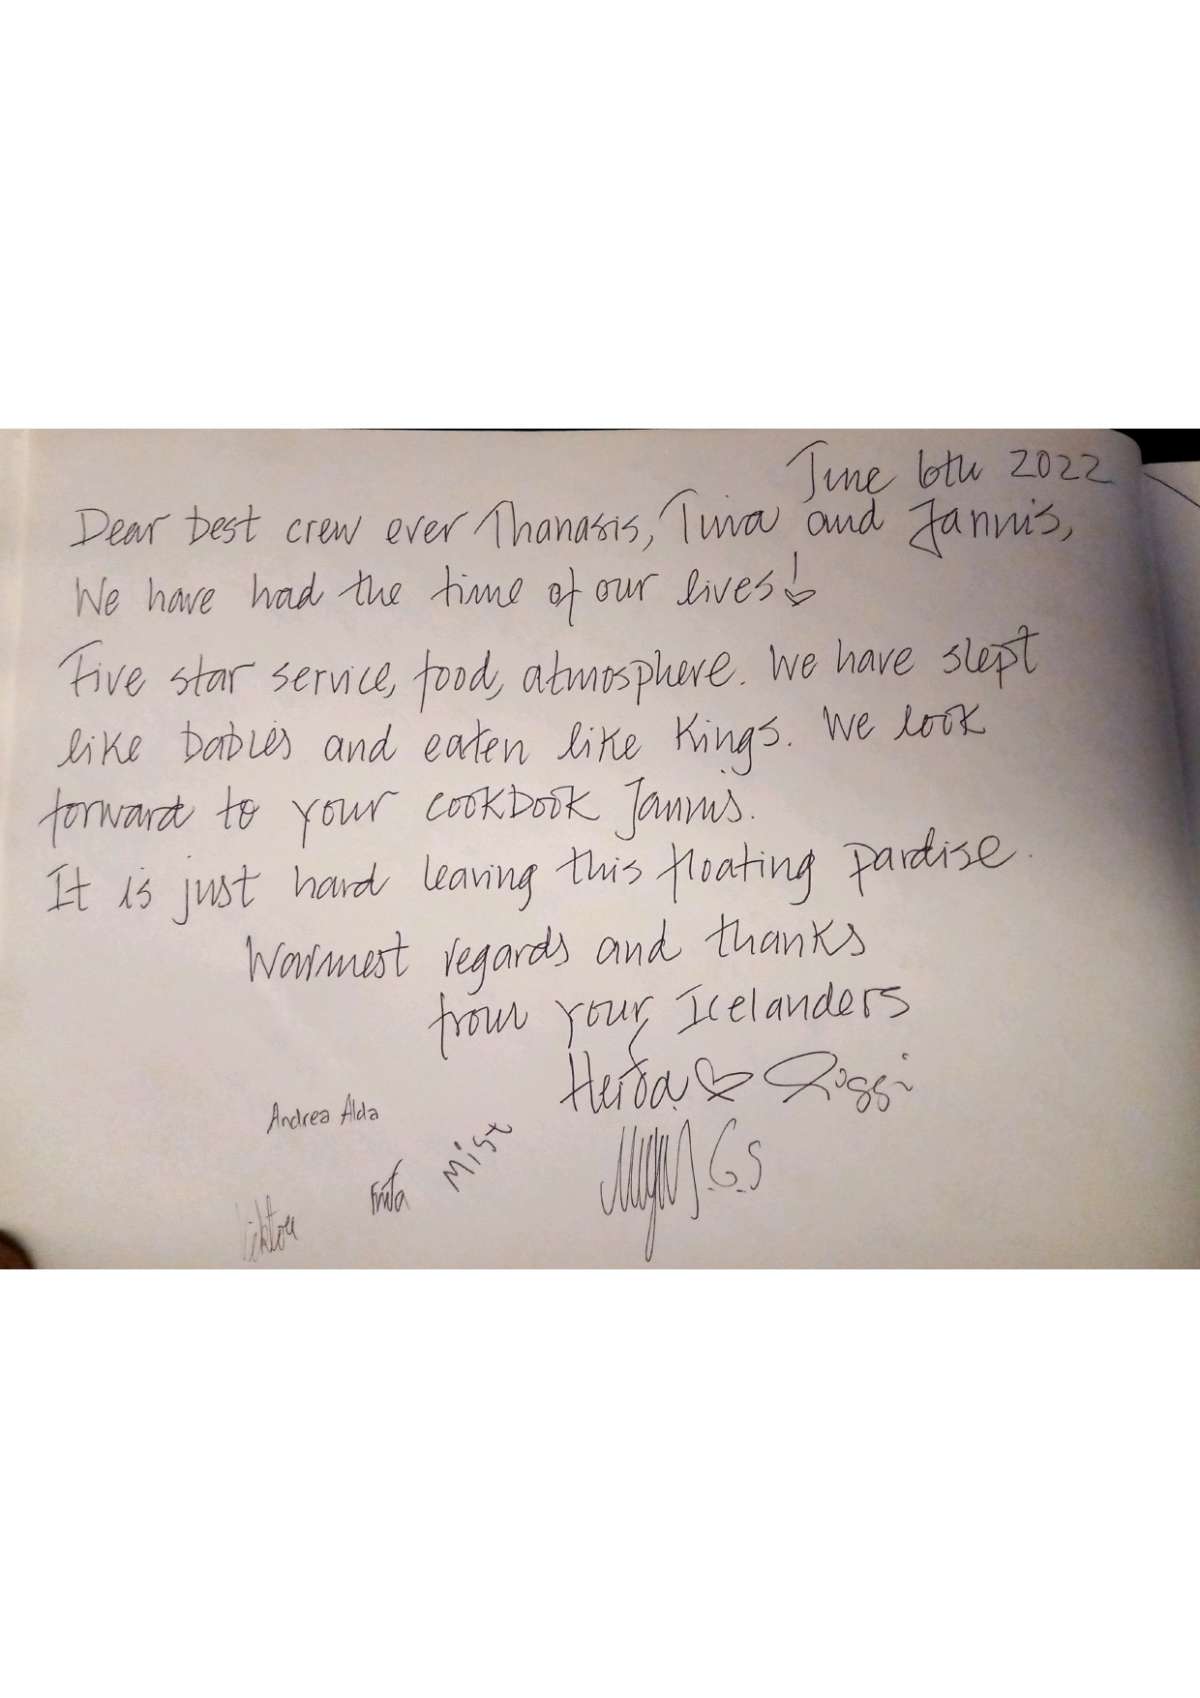 June 6th 2022
Dear best crew ever Thanasis, Tina and Jannis,
We have had the time of our lives!
Five star service, food, atmosphere. We have slept
like babies and eaten like Kings. We look
forward to your cookbook Jannis.
It is just hard leaving this floating pardise.
Warmest regards and thanks
from your Icelanders
Heiða Siggi
Andrea Alda
Mist
G.S
Viktor